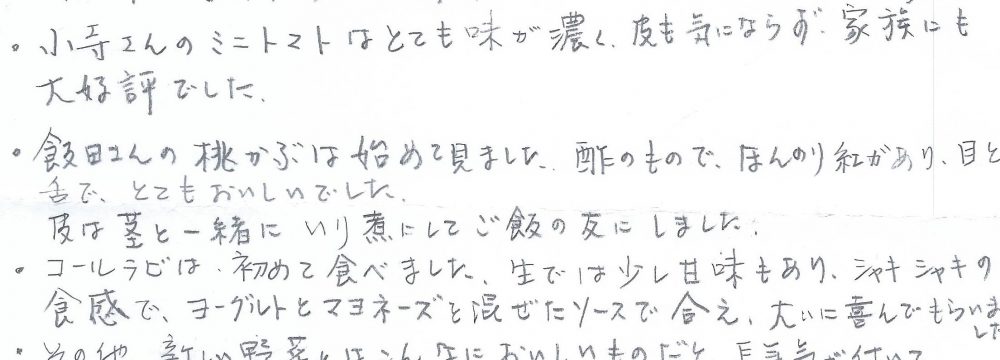 ・小寺さんのミニトマトはとても味が濃く、皮も気にならず、家族にも
大好評でした。
・飯田さんの桃かぶは始めて見ました。酢のもので、ほんのり紅があり、目と
舌で、とてもおいしいでした。
皮は茎と一緒にいり煮にしてご飯の友にしました。
・コールラビは、初めて食べました。生では少し甘味もあり、シャキシャキの
食感で、ヨーグルトとマヨネーズと混ぜたソースで合え、大いに喜んでもらいま
した
・その他、新しい野菜とはこんなにおいしいものだと